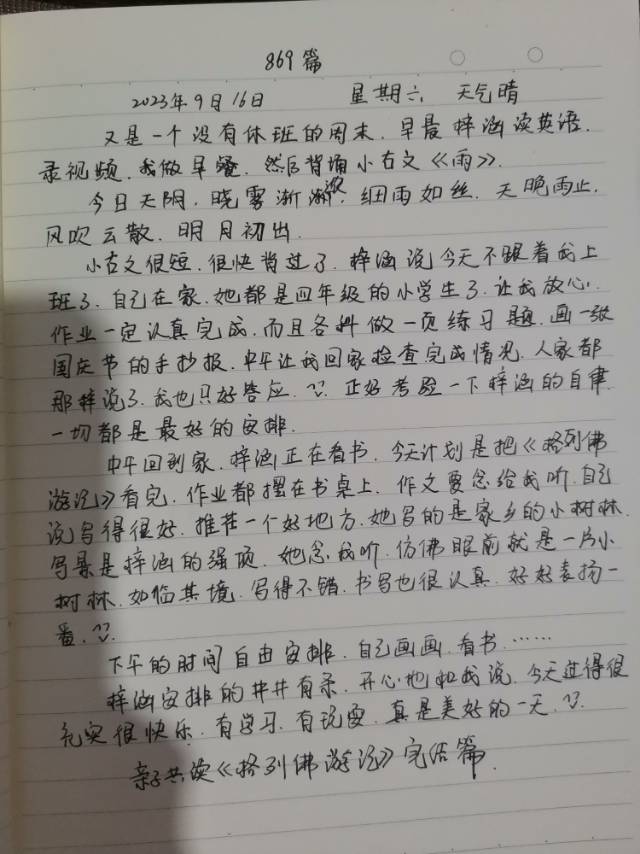 869篇
2023年9月16日 星期六 天气晴
又是一个没有休班的周末，早晨梓涵读英语，
录视频，我做早餐，然后背诵小古文《雨》。
今日天阴，晓雾渐浓，细雨如丝，天晚雨止，
风吹云散，明月初出。
小古文很短，很快背过了，梓涵说今天不跟着我上
班了，自己在家，她都是四年级的小学生了，让我放心，
作业一定认真完成，而且各科做一页练习题，画一张
国庆节的手抄报，中午让我回家检查完成情况，人家都
那样说了，我也只好答应，正好考验一下梓涵的自律，
一切都是最好的安排。
中午回到家，梓涵正在看书，今天计划是把《格列佛
游记》看完，作业都摆在书桌上，作文要念给我听，自己
说写得很好，推荐一个好地方，她写的是家乡的小树林，
写景是梓涵的强项，她念，我听，仿佛眼前就是一片小
树林，如临其境，写得不错，书写也很认真，好好表扬一
番，
下午的时间自由安排，自己画画，看书……
梓涵安排的井井有条，开心地和我说，今天过得很
充实很快乐，有学习，有玩耍，真是美好的一天，
亲子共读《格列佛游记》完结篇。